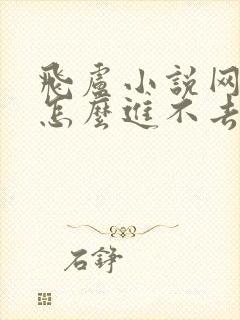 飛盧小説网
怎麼進不去
石錚